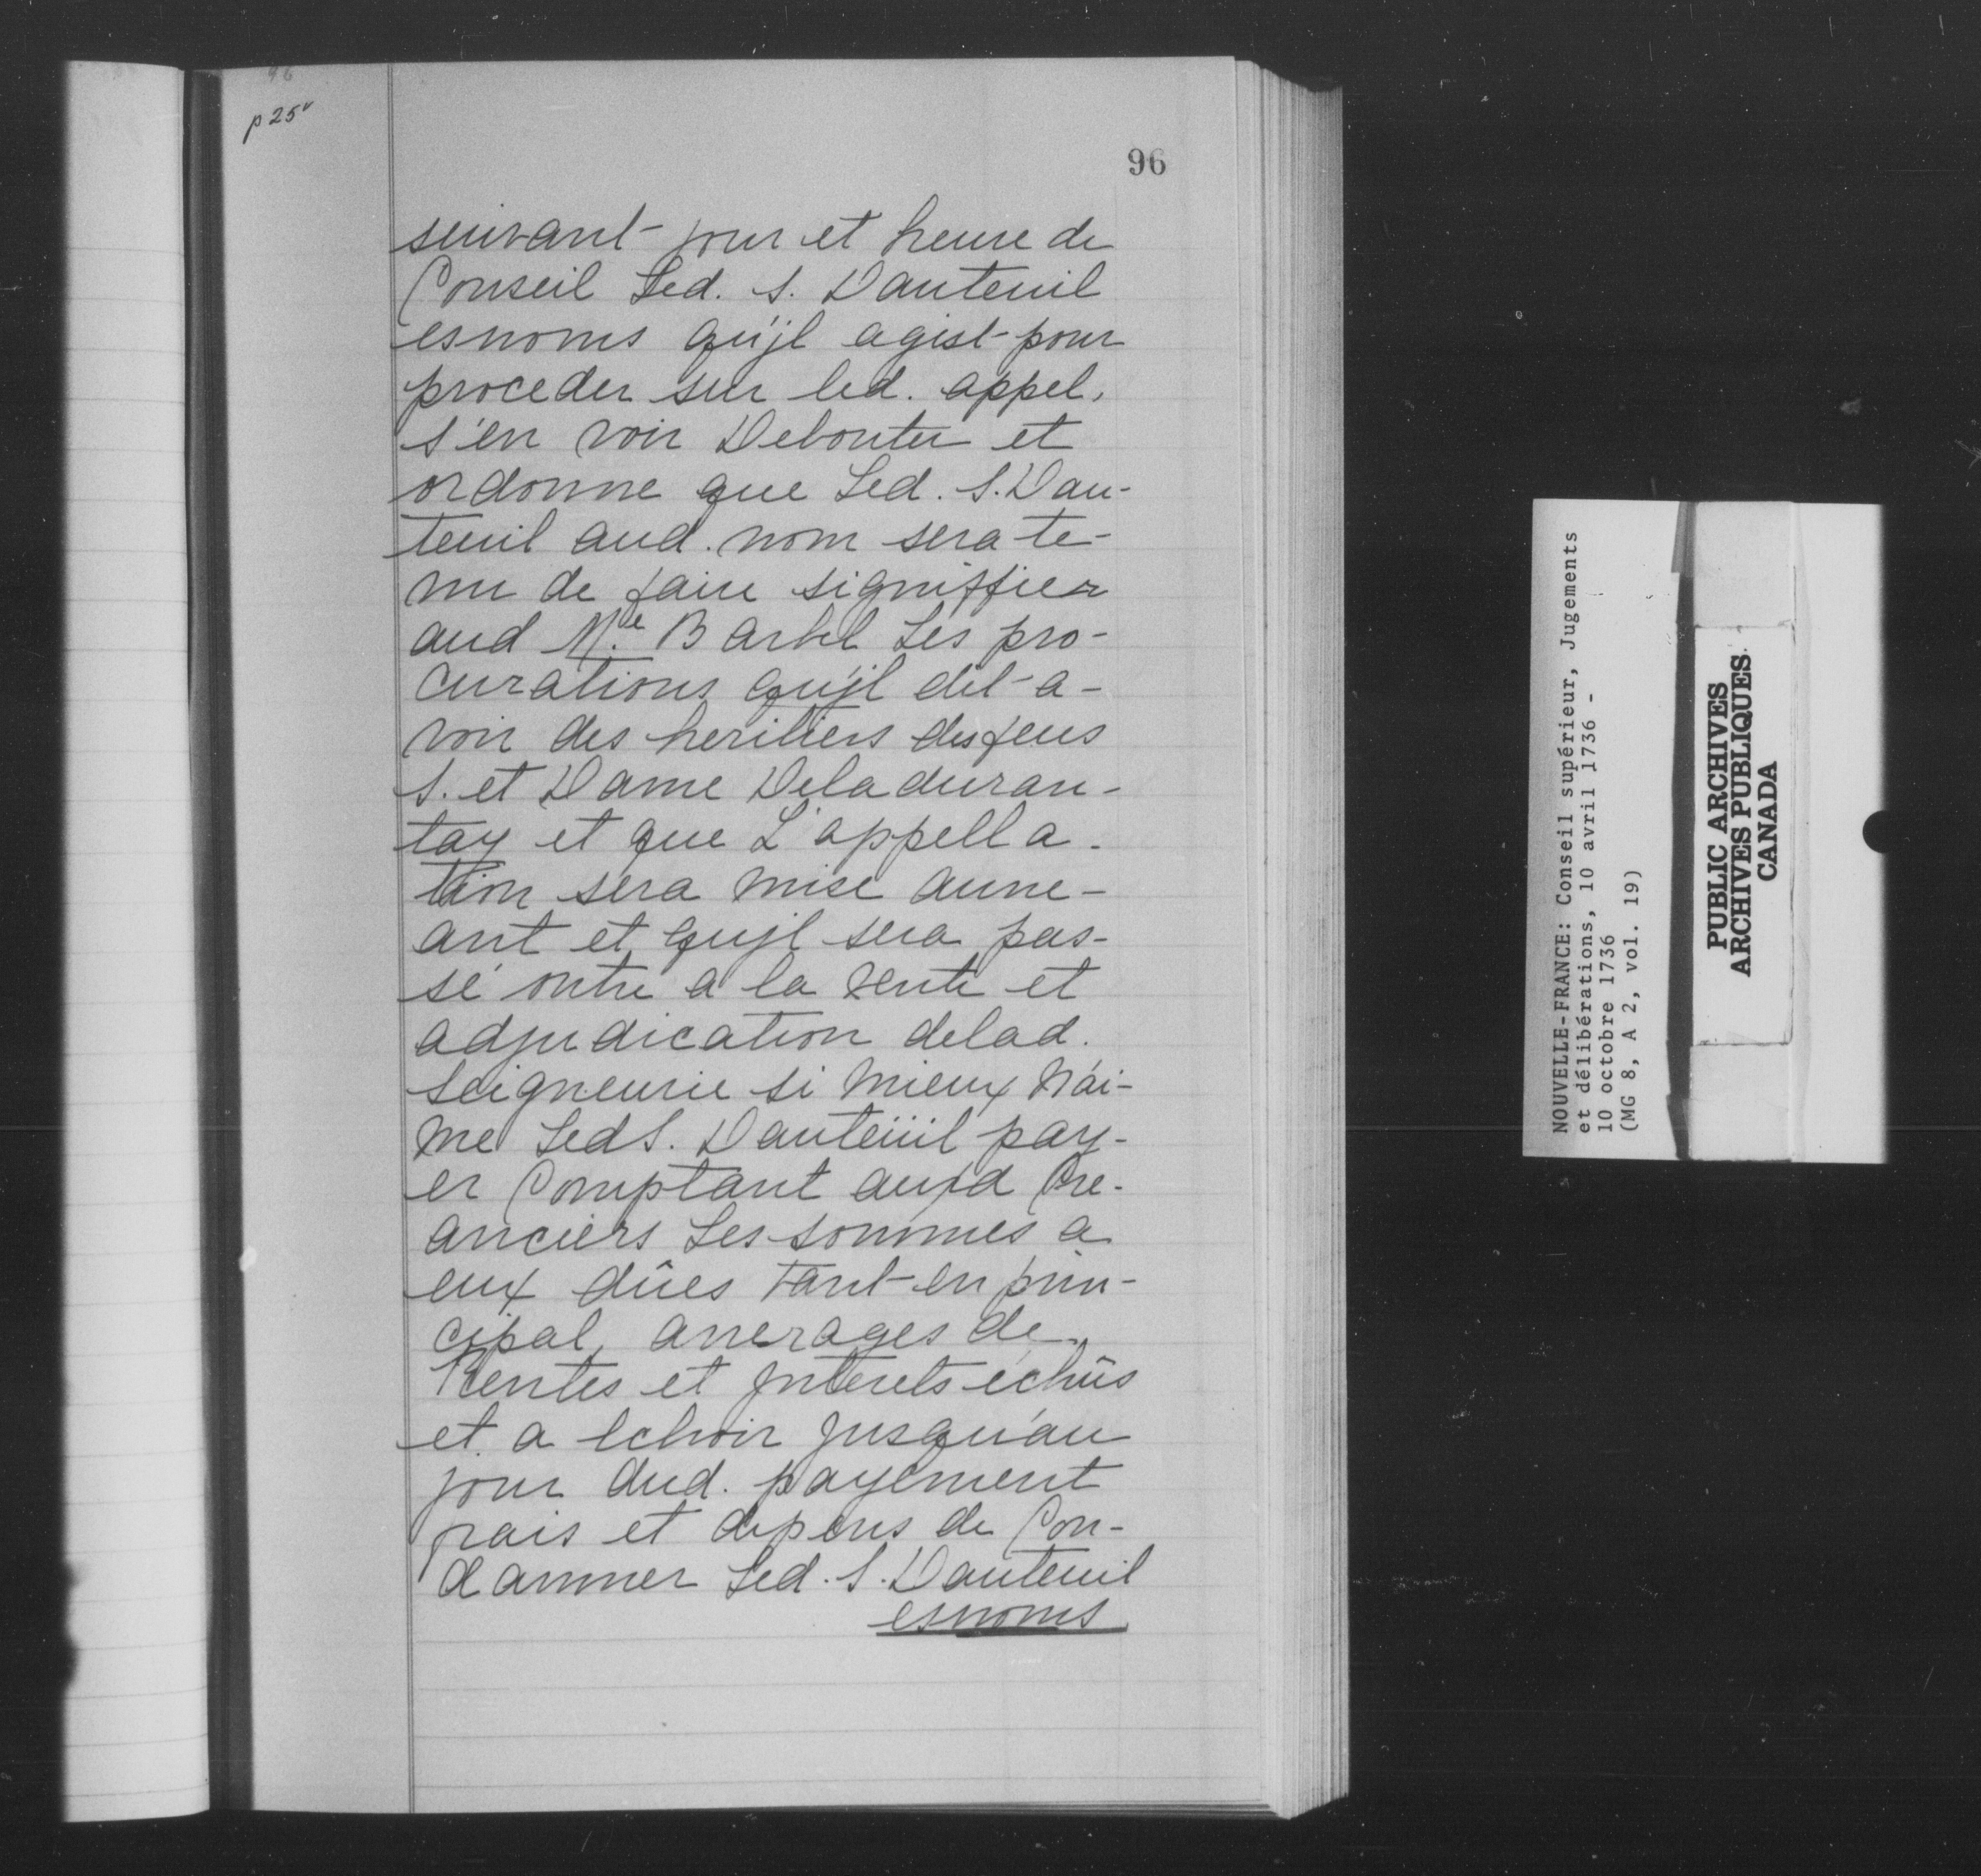 p 25v
96
suivant jour et heure de
Conseil Led. S. Dauteuil
esnoms qu'jl agist pour
proceder sur led. appel,
s'en voir Debouter et
ordonne que Led. S. Dau-
teuil aud. nom sera te-
nu de faire signiffier
aud Me. Barbel Les pro-
curations qu'jl dit a-
voir des heritiers des feus
S. et Dame Deladuran-
tay et que L'appella-
tion sera mise aune-
ant et qu'jl sera pas-
sé outre a la vente et
adjudication delad.
seigneurie si mieux n'ai-
me Led S. Dauteüil pay-
er Comptant auxd Cre-
anciers Les sommes a
eux dûes tant en prin-
cipal, arrerages de
Rentes et jnterets échûs
et a echoir jusqu'au
jour dud. payement
frais et depens de Con-
damner Led. S. Dauteuil
esnoms
NOUVELLE-FRANCE: Conseil supérieur, Jugements
et délibérations, 10 avril 1736 -
10 octobre 1736
(MG 8, A 2, vol. 19)
PUBLIC ARCHIVES
ARCHIVES PUBLIQUES
CANADA